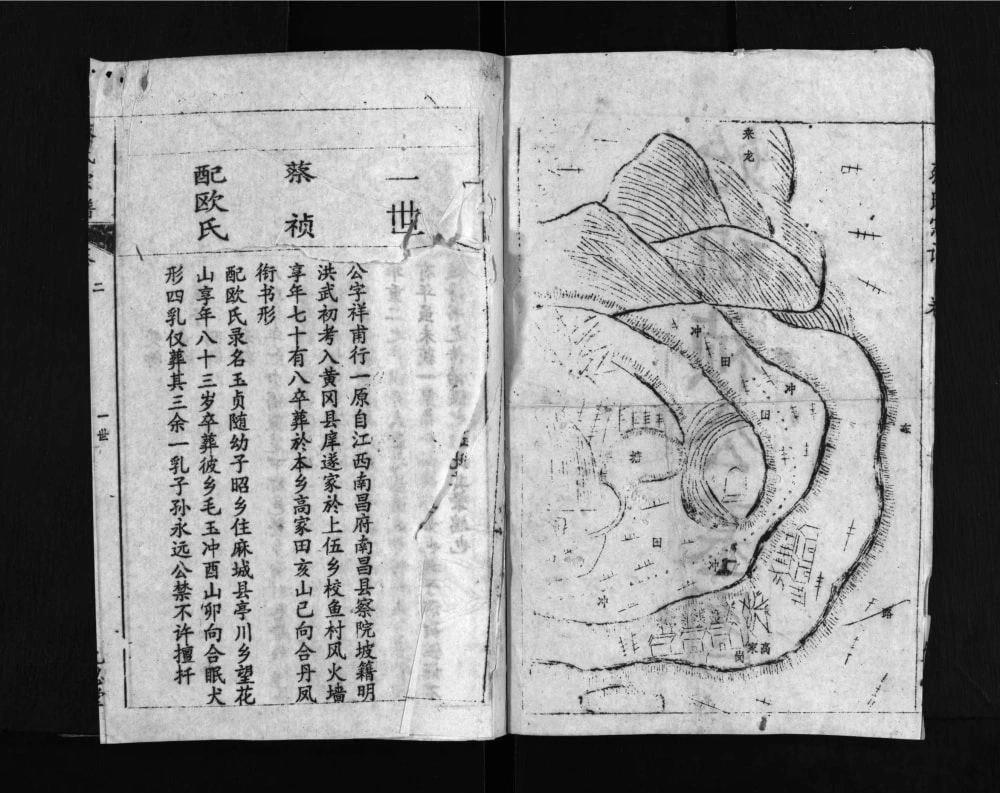 来龙
冲
田
冲
田
塘
田
冲
冲
高家
路
一世
蔡祯
公字祥甫行一原自江西南昌府南昌县察院坡籍明
洪武初考入黄冈县庠遂家於上伍乡校鱼村风火墙
享年七十有八卒葬於本乡高家田亥山巳向合丹凤
衔书形
配欧氏
配欧氏录名玉贞随幼子昭乡住麻城县亭川乡望花
山享年八十三岁卒葬彼乡毛玉冲酉山卯向合眠犬
形四乳仅葬其三余一乳子孙永远公禁不许擅扦
二
一世